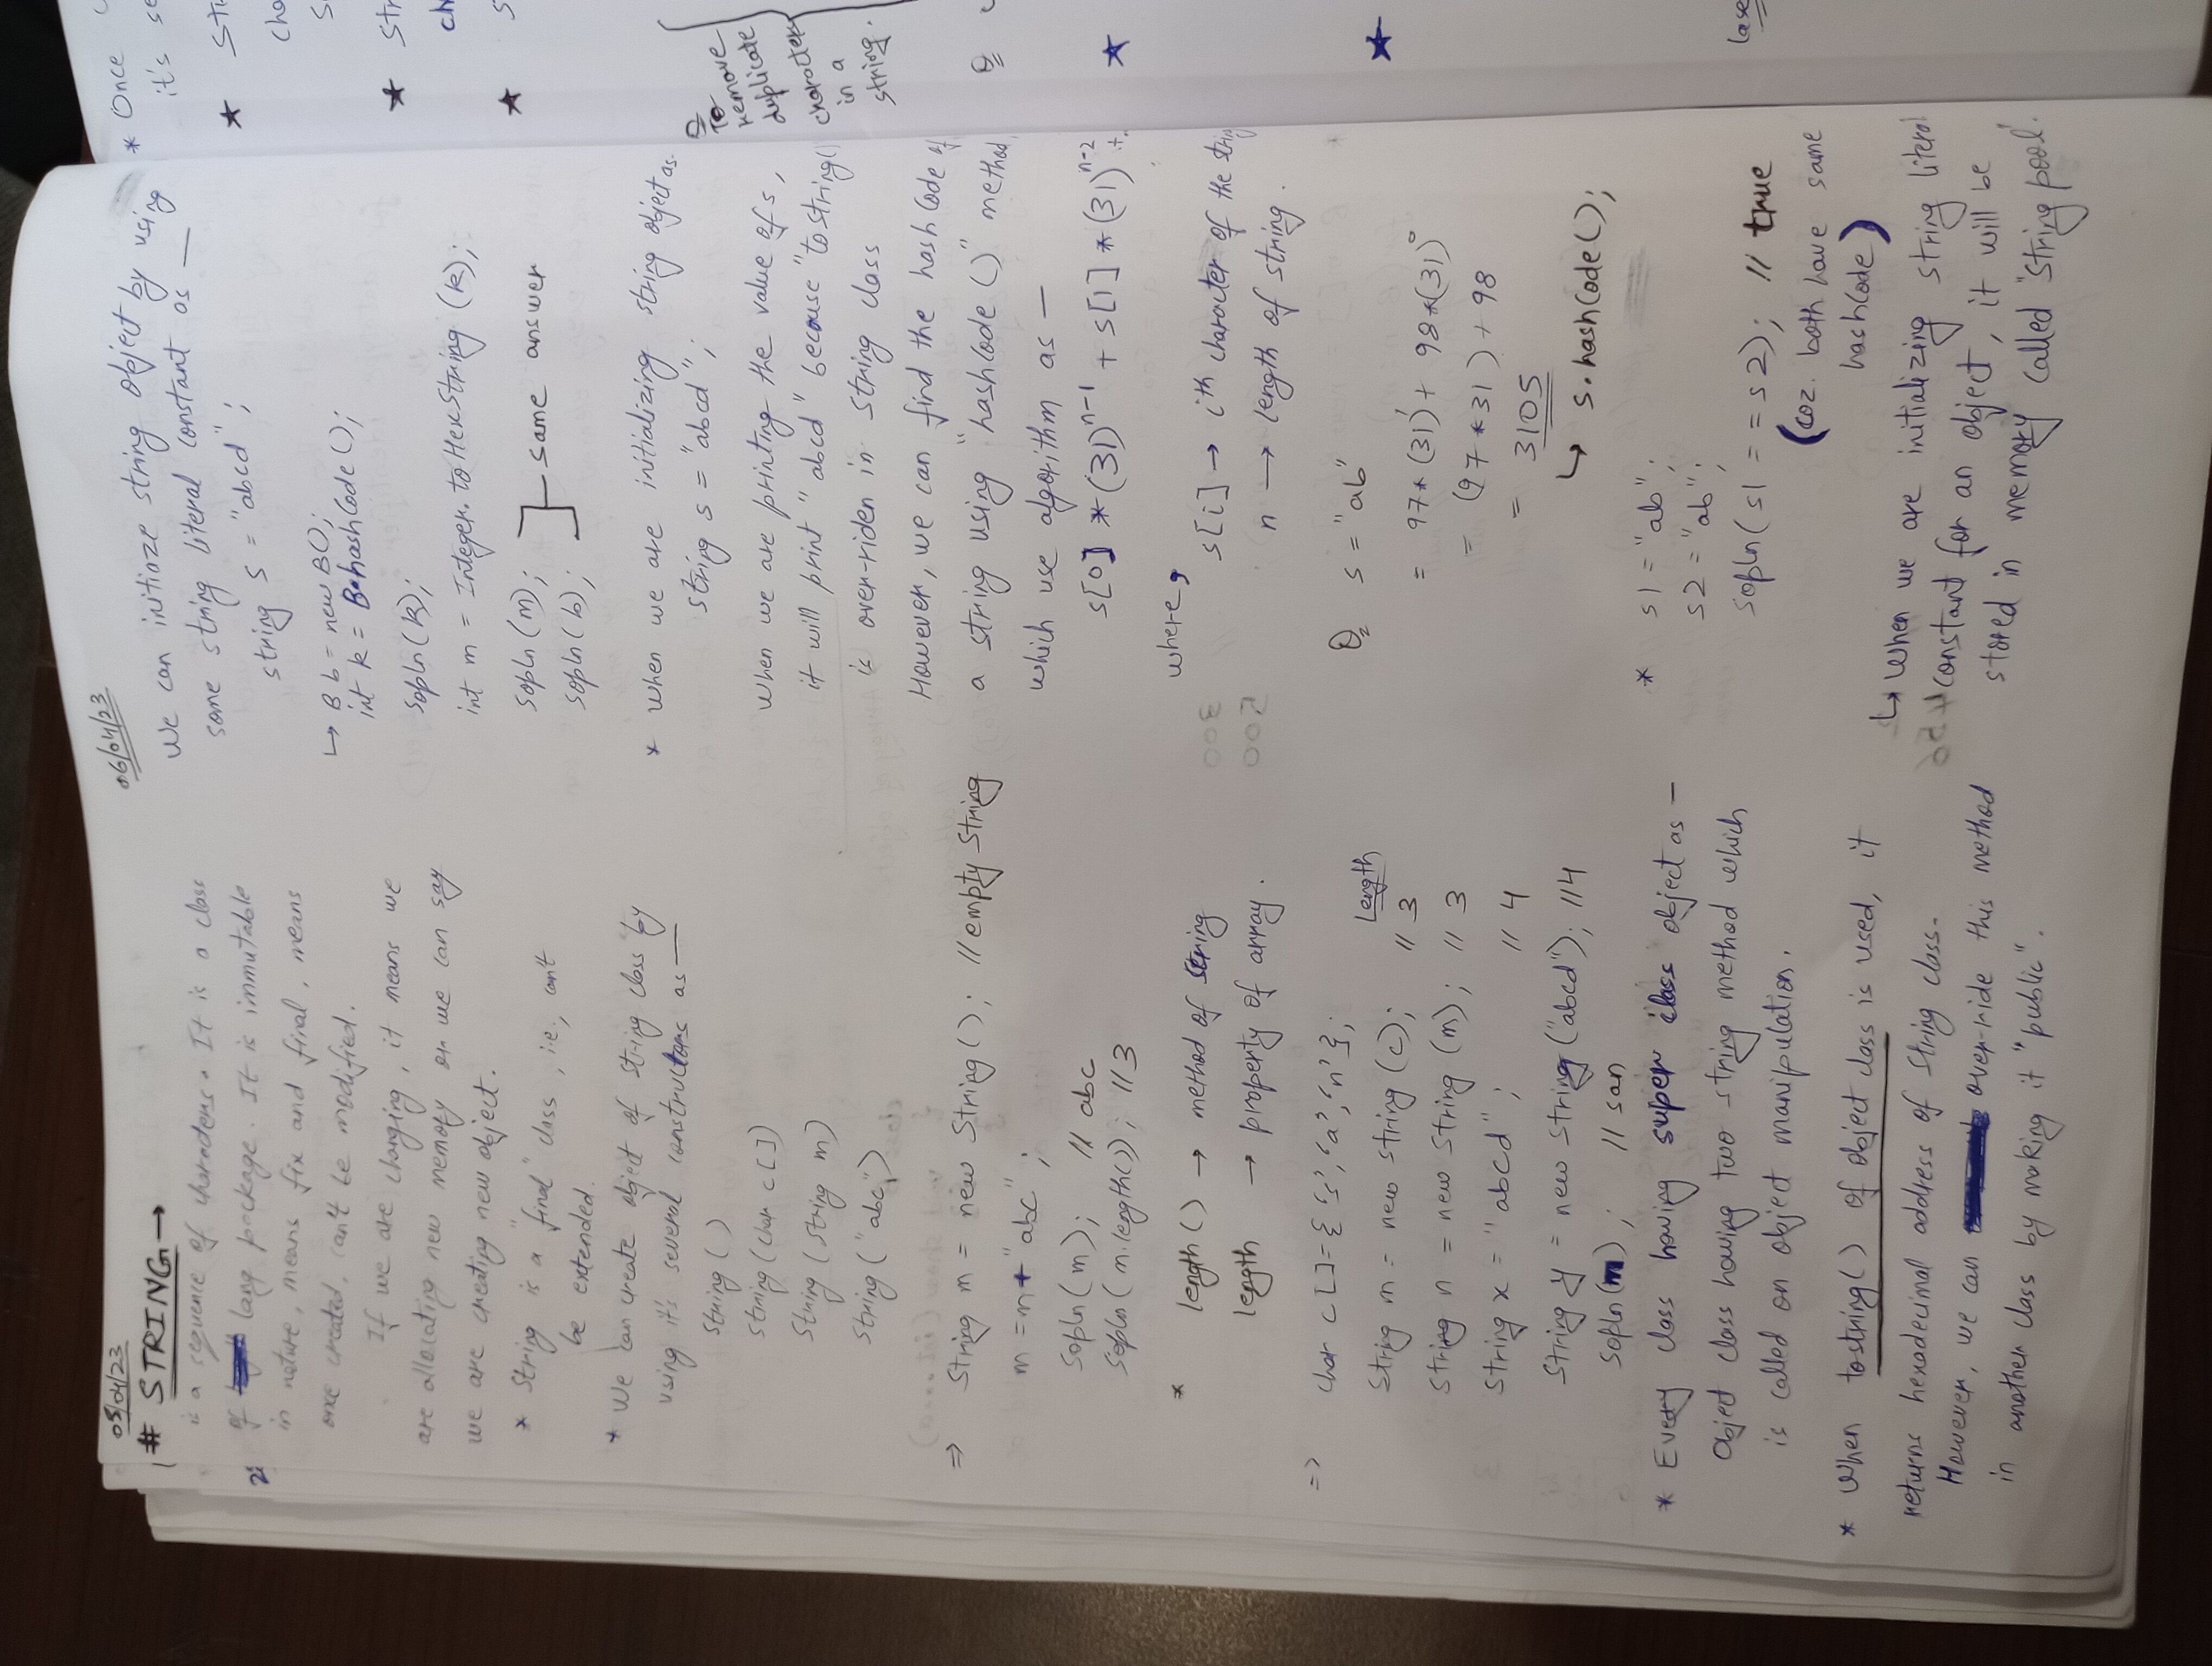 05/04/23
# STRING →
is a sequence of characters. It is a class
of lang package. It is immutable
in nature, means fix and final, means
once created, can't be modified.
If we are changing, it means we
are allocating new memory or we can say
we are creating new object.
* String is a "final" class, i.e., can't
be extended.
* We can create object of string class by
using it's several constructors as —
String ( )
string (char c [ ])
String (string m)
string ("abc")
⇒ String m = new String(); // empty String
m = m + "abc" ;
sopln(m); // abc
sopln( m.length()); // 3
* length ( ) → method of string
length → property of array.
=> char c[]={ 's', 'a', 'n' };
Length
String m = new string (c); // 3
String n = new String (m); // 3
String x = "abcd" ; // 4
String y = new string ("abcd"); // 4
sopln(m) ; // san
* Every class having super class object as —
Object class having two string method which
is called on object manipulation.
* When tostring( ) of object class is used, it
returns hexadecimal address of string class.
However, we can over-ride this method
in another class by making it "public".
06/04/23
We can initiaze string object by using
some string literal constant as —
string s = "abcd" ;
↳ B b = new B();
int k = B.hashCode ();
sopln(k);
int m = Integer.toHexString (k);
sopln (m);
same answer
sopln (b);
* When we are initializing string object as
string s = "abcd" ;
When we are printing the value of s,
it will print "abcd" because "tostring()
is over-riden in String class
However, we can find the hashCode of
a string using "hashCode ()" method
which use algorithm as —
s[0] * (31)ⁿ⁻¹ + s[1] * (31)ⁿ⁻² +
where,
s[i] → iᵗʰ character of the string
n → length of string.
Q. s = "ab"
= 97 * (31)¹ + 98 * (31)⁰
= (97 * 31) + 98
= 3105
↳ s.hashCode();
* s1 = "ab";
s2 = "ab";
sopln( s1 == s2); // true
(coz. both have same
hashCode)
↳ When we are initializing string literal
constant for an object, it will be
stored in memory called "string pool".
* Once
it's
To
remove
duplicate
characters
in a
string.